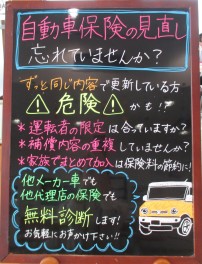 自動車保険の見直し
忘れていませんか?
ずっと同じ内容で更新している方
危険かも!!
*運転者の限定は合っていますか?
*補償内容の重複していませんか?
*家族でまとめて加入は保険料の節約に!
他メーカー車でも
他代理店の保険でも
無料診断します!
お気軽にお声かけ下さい!!